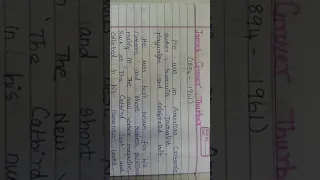 James Grover Thurber
(1894 - 1961)
He was an American Cartoonist,
author, humourist, journalist,
playwright and celebrated wit.
He was best known for his
cartoons and short stories, published
mainly in The New Yorker magazine
such as 'The Catbird Seat' and
collected in his numerous books